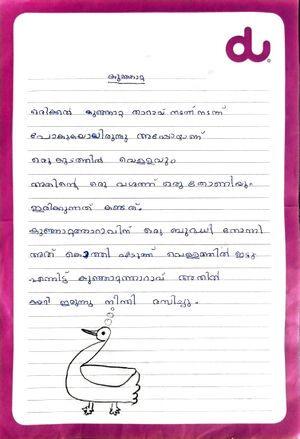 du
കുഞ്ഞാറ്റ
ഒരിക്കൽ കുഞ്ഞാറ്റ താറാവ് നടന്ന് നടന്ന്
പോകുകയായിരുന്നു അപ്പോഴാണ്
ഒരു കുടത്തിൽ വെള്ളവും
അതിന്റെ ഒരു വശത്ത് ഒരു തോണിയും
ഇരിക്കുന്നത് കണ്ടത്.
കുഞ്ഞാറ്റതാറാവിന് ഒരു ബുദ്ധി തോന്നി
അത് കൊത്തി എടുത്ത് വെള്ളത്തിൽ ഇട്ടു
എന്നിട്ട് കുഞ്ഞാറ്റതാറാവ് അതിൽ
കയറി ഇരുന്നു നീന്തി രസിച്ചു.